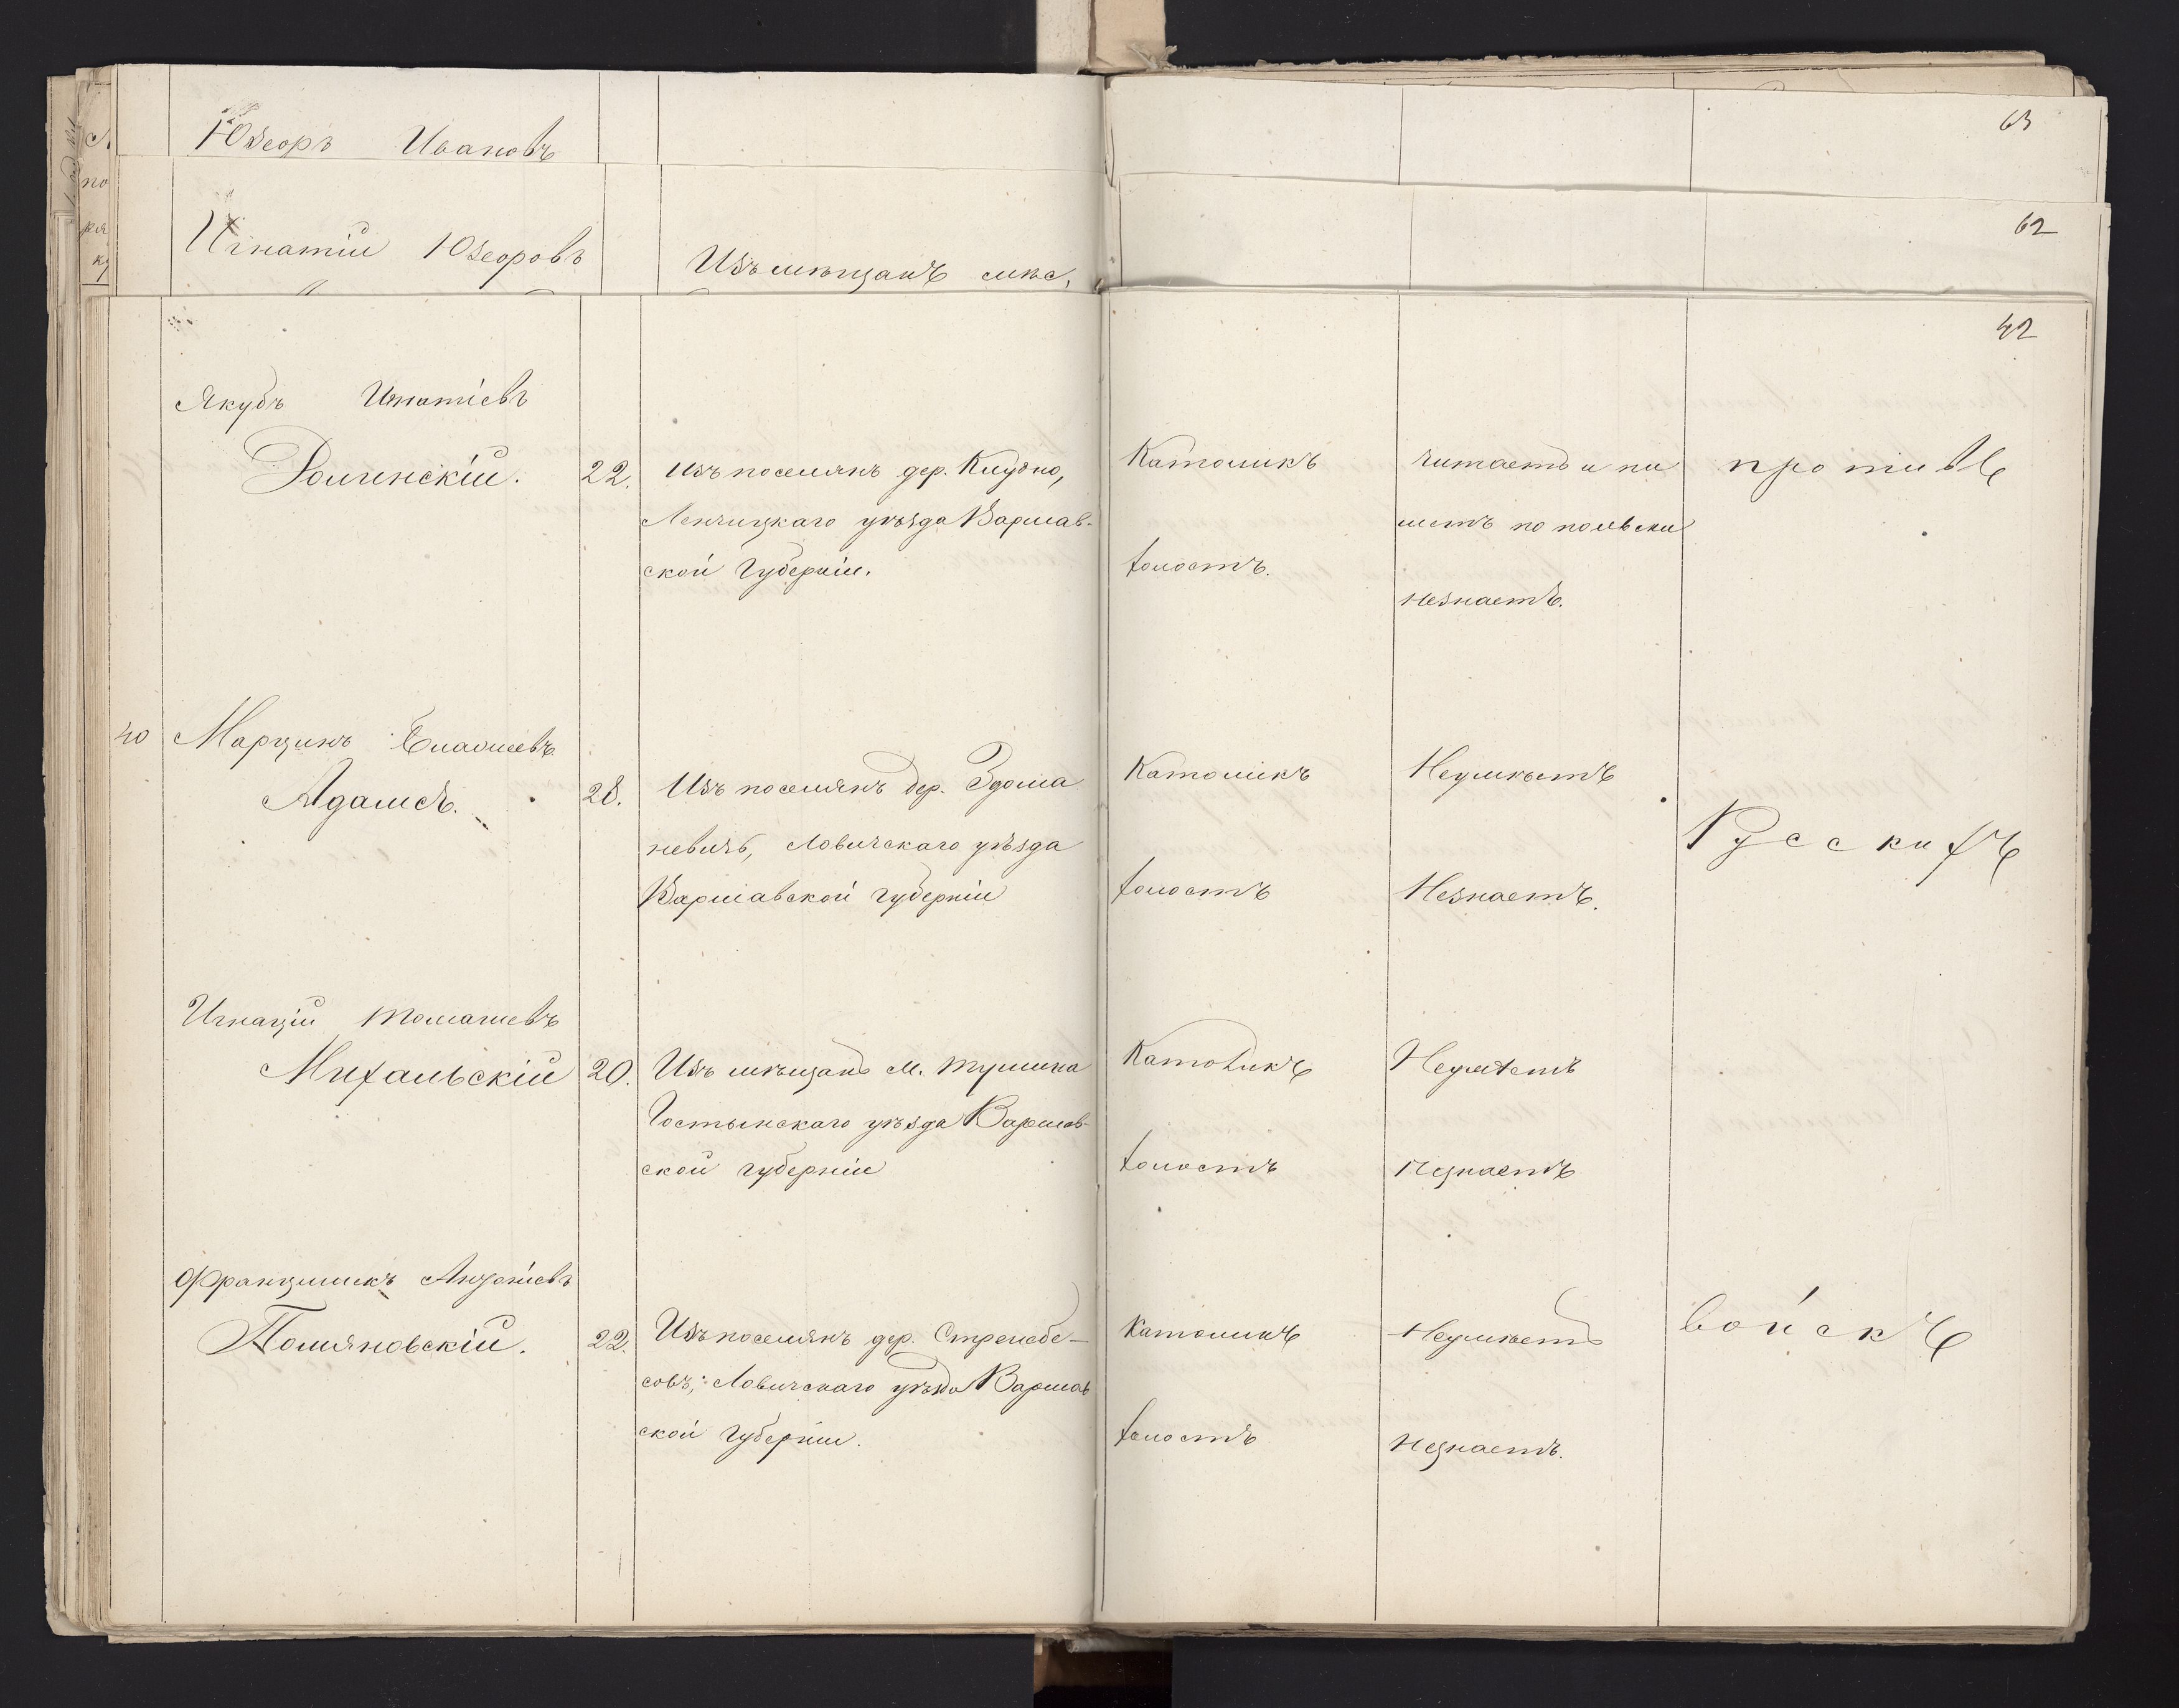 Юзефъ Ивановъ
63
Игнатій Юзефовъ
Изъ мѣщанъ мѣс.
62
42
Якубъ Игнатіевъ
22. Изъ поселянъ дер. Клудно,
Ленчицкаго уѣзда Варшав-
ской Губерніи.
Католикъ
холостъ.
читаетъ и пи
шетъ по польски
незнаетъ.
противъ
40 Марцинъ
Адамсъ.
28. Изъ поселянъ дер.
невичъ, Ловичскаго уѣзда
Варшавской губерніи
Католикъ
холостъ
Неумѣетъ
Незнаетъ.
Русскихъ
Игнацій Томашевъ
Михальскій
20. Изъ мѣщанъ м.
Гостынскаго уѣзда Варшав-
ской губерніи
Католикъ
холостъ
Неумѣетъ
незнаетъ
Францишекъ Андреевъ
Поляновскій.
22. Изъ поселянъ дер.
совъ, Ловичскаго уѣзда Варшав
ской Губерніи.
Католикъ
холостъ
Неумѣетъ
незнаетъ.
войскъ